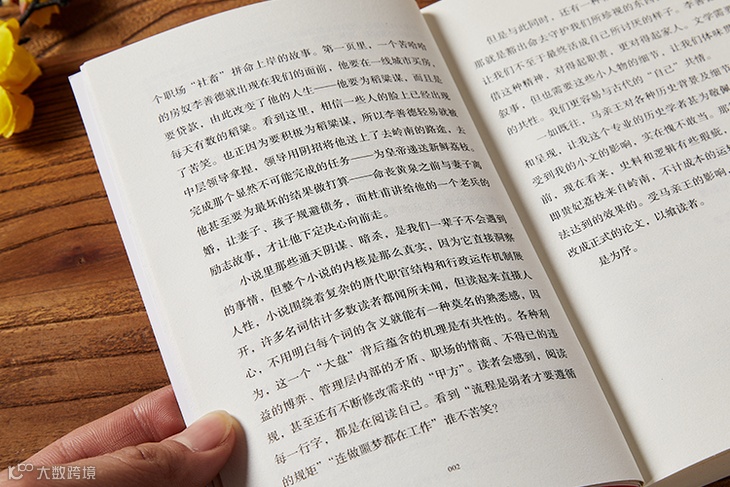 个职场“社畜”拼命上岸的故事。第一页里，一个苦哈哈
的房奴李善德就出现在我们的面前，他要在一线城市买房，
要贷款，由此改变了他的人生——他要为稻粱谋，而且是
每天有数的稻粱。看到这里，相信一些人的脸上已经出现
了苦笑。也正因为要积极为稻粱谋，所以李善德轻易就被
中层领导拿捏，领导用阴招将他送上了去岭南的路途，去
完成那个显然不可能完成的任务——为皇帝递送新鲜荔枝。
他甚至要为最坏的结果做打算——命丧黄泉之前与妻子离
婚，让妻子、孩子规避债务，而杜甫讲给他的一个老兵的
励志故事，才让他下定决心向前走。
小说里那些通天阴谋、暗杀，是我们一辈子不会遇到
的事情，但整个小说的内核是那么真实，因为它直接洞察
人性，小说围绕着复杂的唐代职官结构和行政运作机制展
开，许多名词估计多数读者都闻所未闻，但读起来直摄人
心，不用明白每个词的含义就能有一种莫名的熟悉感，因
为，这一个“大盘”背后蕴含的机理是有共性的。各种利
益的博弈、管理层内部的矛盾、职场的情商、不得已的违
规，甚至还有不断修改需求的“甲方”。读者会感到，阅读
每一行字，都是在阅读自己。看到“流程是弱者才要遵循
的规矩”“连做噩梦都在工作”谁不苦笑？
002
但是与此同时，还有一种
那就是豁出命去守护我们所珍视的东西
让我们不至于最终活成自己所讨厌的样子。李善
借这种精神，对得起职责，更对得起家人。文学需
叙事，但也需要这些小人物的细节，让我们体味那
的共性。我们更容易与古代的“自己”共情。
一如既往，马亲王对各种历史背景及细节
和呈现，让我这个专业的历史学者甚为敬佩
受到我的小文的影响，实在愧不敢当。那
前，现在看来，史料和逻辑有些瑕疵，
即贵妃荔枝来自岭南，不计成本的运
法达到的效果的。受马亲王的影响，
改成正式的论文，以飨读者。
是为序。
大数跨境